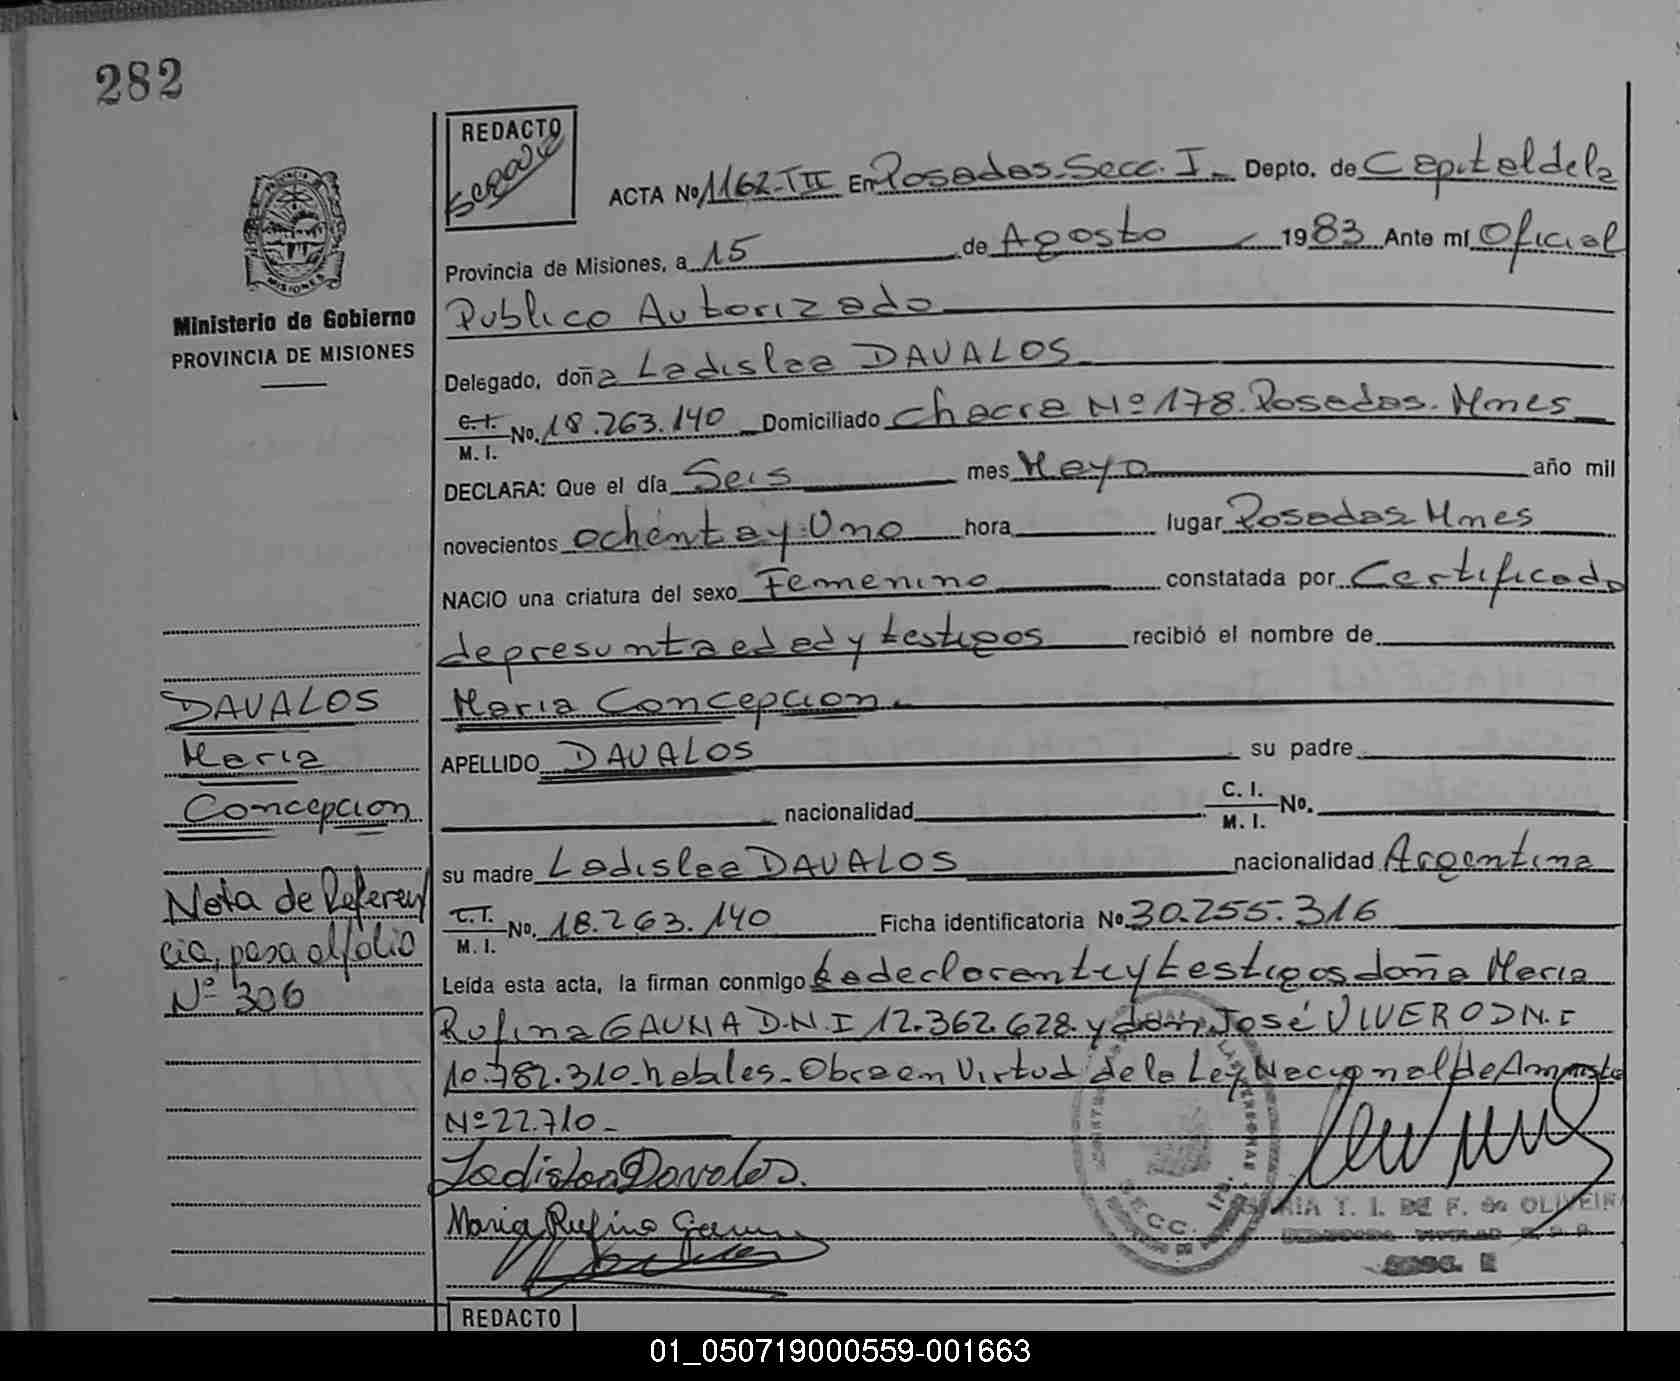 282
REDACTO
ACTA Nº 1162-TII En Posadas-Secc. I- Depto. de Capital de la
Provincia de Misiones, a 15 de Agosto 1983 Ante mí Oficial
Ministerio de Gobierno
PROVINCIA DE MISIONES
Publico Autorizado
Delegado, doña Ladislaa DAVALOS
C.I. M. I. No. 18.263.140 Domiciliado Chacra Nº 178. Posadas. Mnes
DECLARA: Que el día Seis mes Mayo año mil
novecientos ochenta y Uno hora lugar Posadas Mnes
NACIO una criatura del sexo Femenino constatada por Certificado
de presunta edad y testigos recibió el nombre de
Maria Concepcion.
APELLIDO DAVALOS su padre
nacionalidad C. I. M. I. No.
su madre Ladislaa DAVALOS nacionalidad Argentina
C.I. M. I. No. 18.263.140 Ficha identificatoria Nº 30.255.316
Leída esta acta, la firman conmigo la declarante y testigos doña Maria
Rufina GAUNA D.N.I 12.362.628. y don José VIVERO D N.I
10.782.310. habiles. Obra en Virtud de la Ley Nacional de Amnistia
Nº 22.710-
DAVALOS
Maria
Concepcion
Nota de Referen
cia, pasa al folio
Nº 306
Ladislaa Davalos.
Maria Rufina
SECC.
MARIA T. I. DE F. de OLIVEIRA
SECC. I
REDACTO
01_050719000559-001663